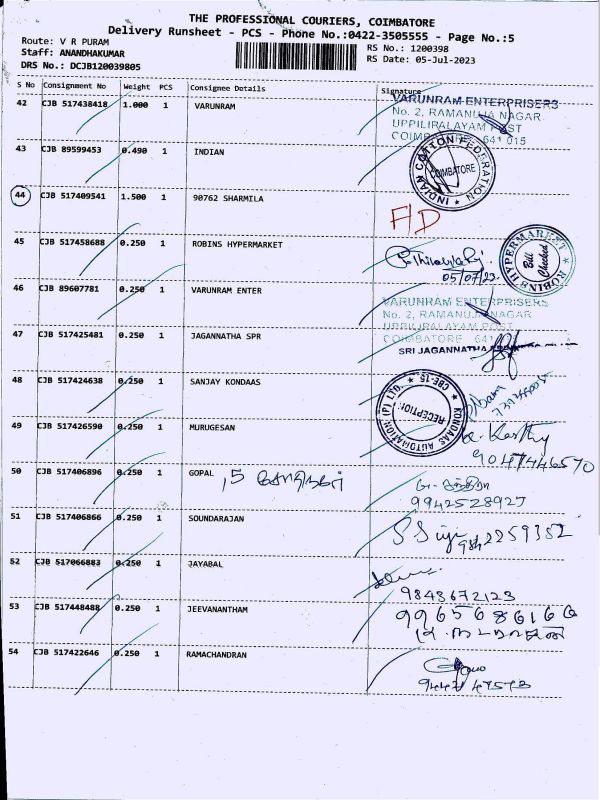 THE PROFESSIONAL COURIERS, COIMBATORE
Delivery Runsheet - PCS - Phone No.:0422-3505555 - Page No.:5
Route: V R PURAM
RS No.: 1200398
Staff: ANANDHAKUMAR
RS Date: 05-Jul-2023
DRS No.: DCJB120039805
S No Consignment No Weight PCS Consignee Details Signature
42 CJB 517438418 1.000 1 VARUNRAM
VARUNRAM ENTERPRISERS
No. 2, RAMANUJA NAGAR
UPPILIRALAYAM POST
COIMBATORE 641 015
43 CJB 89599453 0.490 1 INDIAN
INDIAN COTTON FEDERATION
COIMBATORE
44 CJB 517409541 1.500 1 90762 SHARMILA
F/D
45 CJB 517458688 0.250 1 ROBINS HYPERMARKET
05/07/23
ROBINS HYPERMARKET
Bill Checked
46 CJB 89607781 0.250 1 VARUNRAM ENTER
VARUNRAM ENTERPRISERS
No. 2, RAMANUJA NAGAR
UPPILIRALAYAM POST
COIMBATORE 641
47 CJB 517425481 0.250 1 JAGANNATHA SPR
SRI JAGANNATHA
48 CJB 517424638 0.250 1 SANJAY KONDAAS
KONDAAS AUTOMATION (P) LTD.
CBE-15
RECEPTION
49 CJB 517426590 0.250 1 MURUGESAN
K. Karthy
9047446570
50 CJB 517406896 0.250 1 GOPAL
9942528927
51 CJB 517406866 0.250 1 SOUNDARAJAN
9842259382
52 CJB 517066883 0.250 1 JAYABAL
9843672123
53 CJB 517448488 0.250 1 JEEVANANTHAM
9965686166
54 CJB 517422646 0.250 1 RAMACHANDRAN